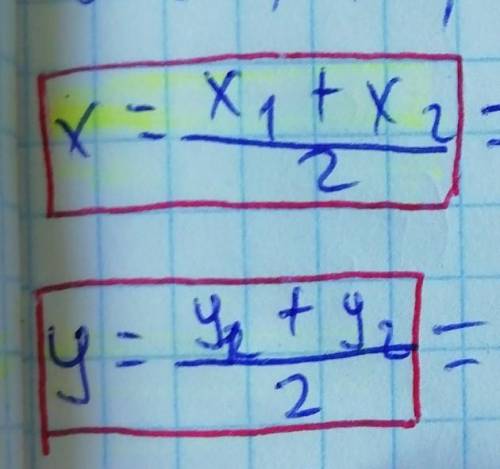 x = (x₁ + x₂)/2 =
y = (y₁ + y₂)/2 =